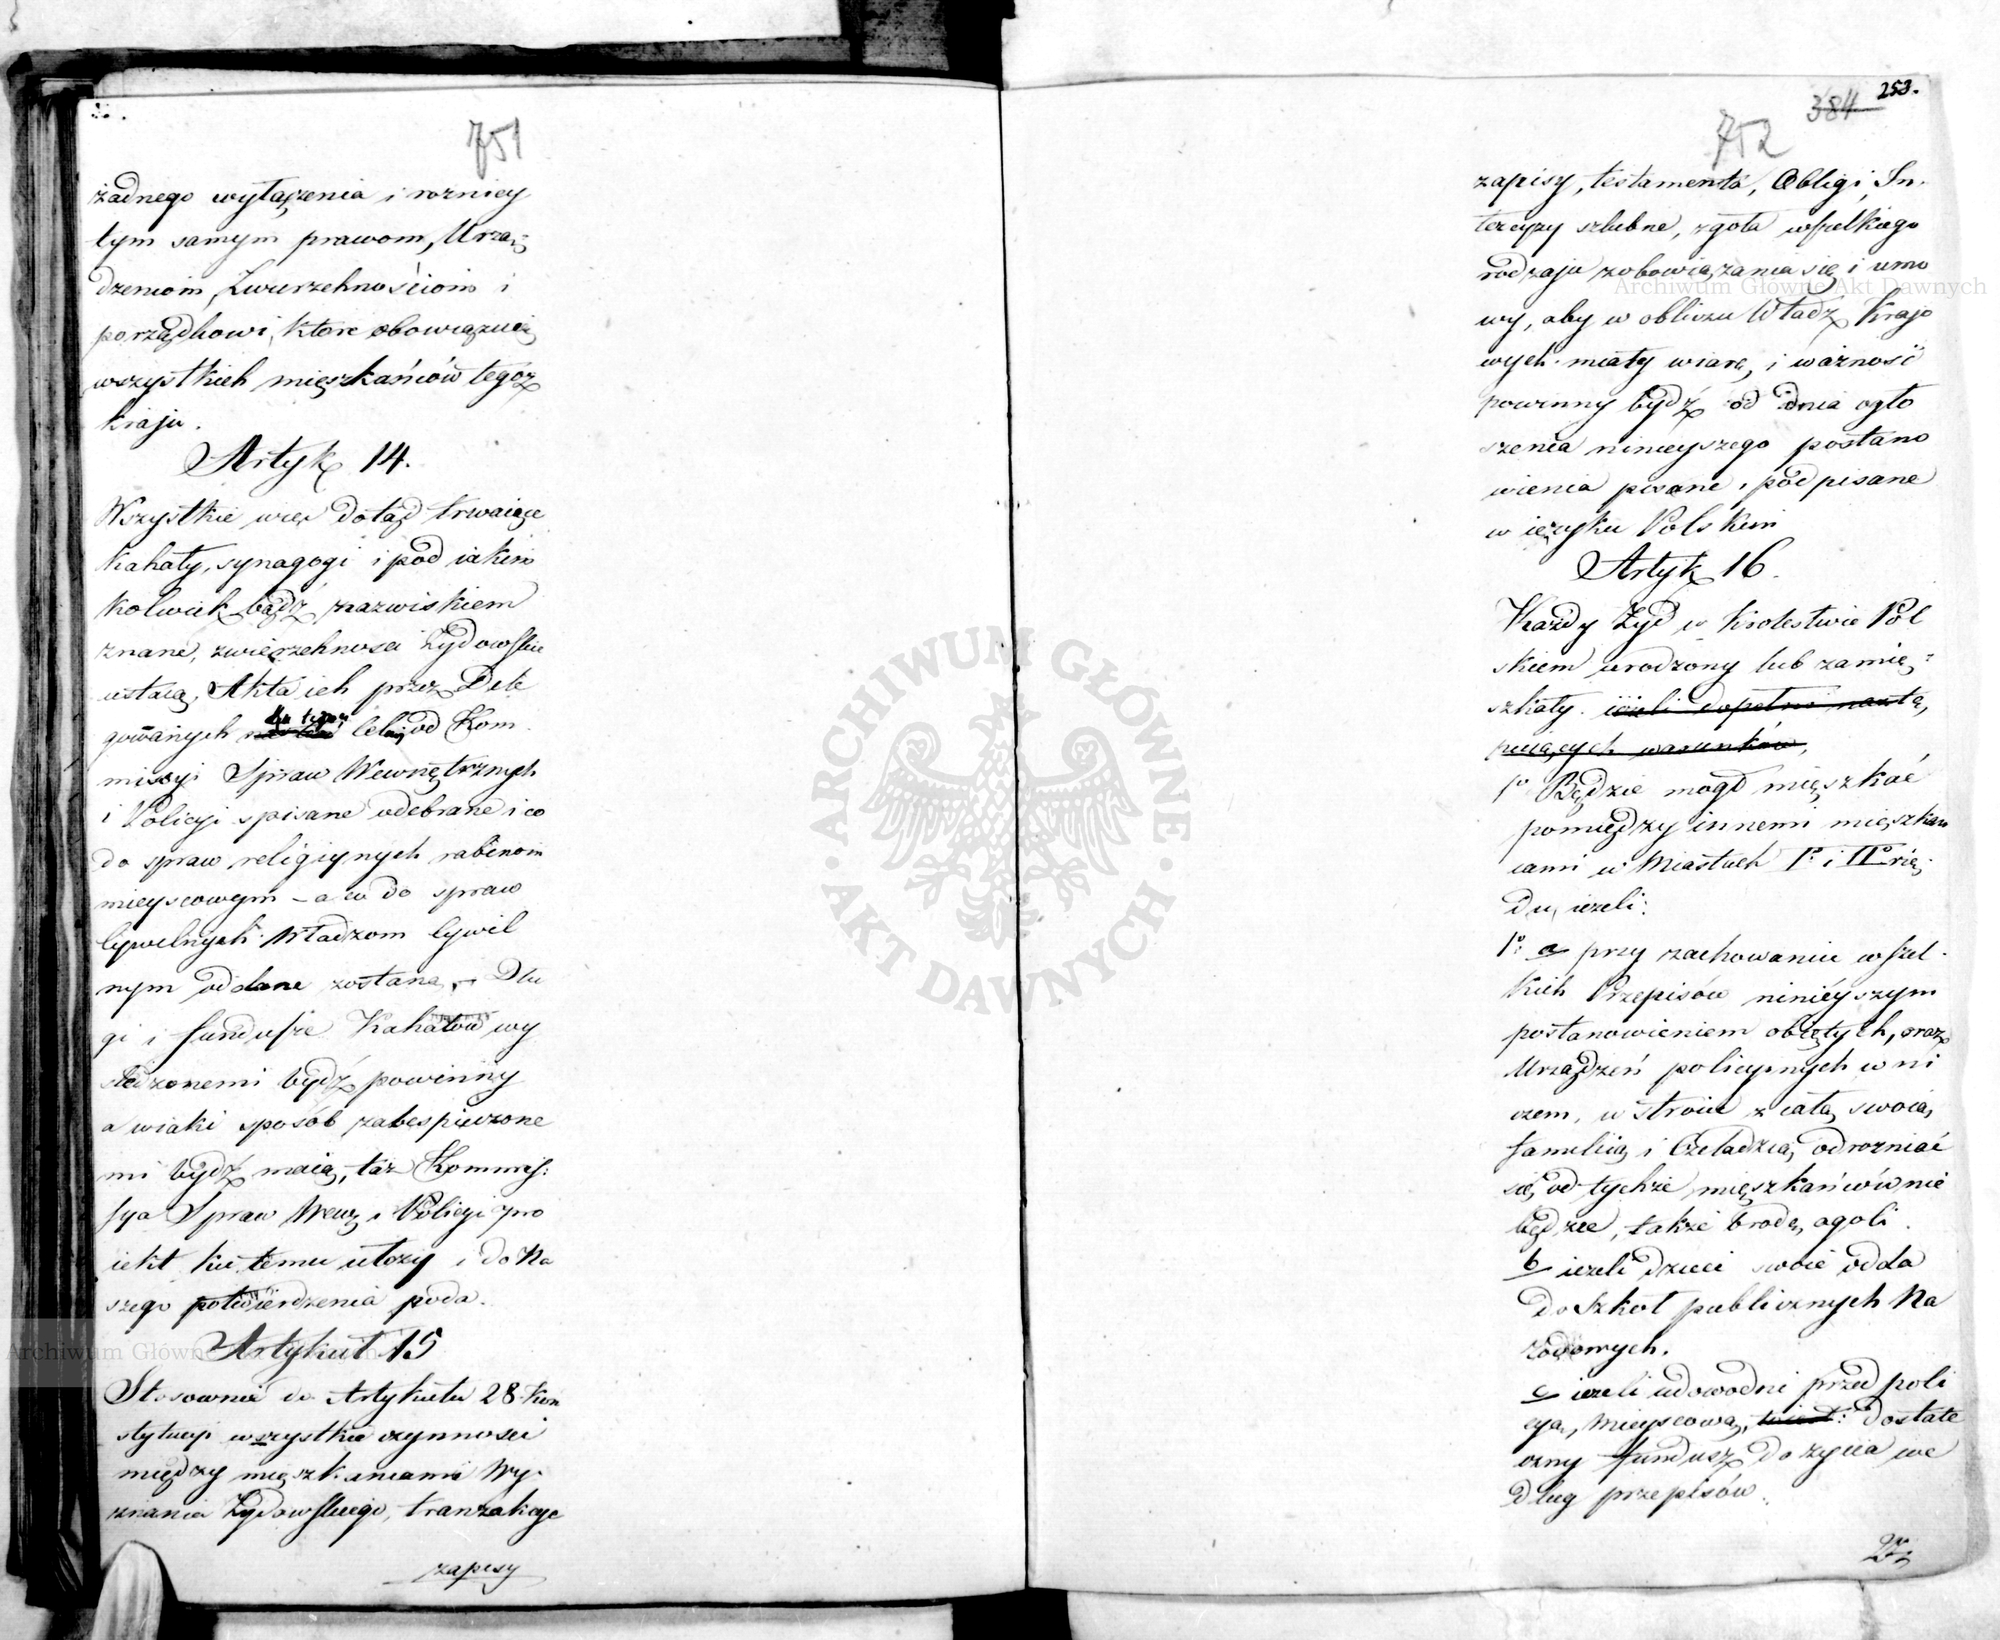 751
żadnego wyłączenia i roznicy
tym samym prawom, Urzą-
dzeniom, Zwierzchnościom i
porządkowi, ktore obowiązuią
wszystkich mięszkańców tegoż
kraju.
Artyk 14.
Wszystkie więc dotąd trwaiące
Kahały, synagogi i pod iakim
kolwiek bądź nazwiskiem
znane, zwierzchnosci Żydowskie
ustaią, Akta ich przez Dele
gowanych na ten cel od Kom-
missyi Spraw Wewnętrznych
i Policyi spisane odebrane i co
do spraw religiynych rabinom
mieyscowym – a co do spraw
cywilnych Władzom cywil
nym oddane zostaną, – Dłu
gi i fundusze Kahałów wy
śledzonemi bydź powinny
a w iaki sposób zabespieczone
mi bydź maią, taż Kommis:
sya Spraw Wew: i Policyi pro
iekt ku temu ułoży i do Na
szego potwierdzenia poda.
Artykuł 15
Stosownie do Artykułu 28. Kon
stytucyi wszystkie czynnosci
między mięszkancami Wy-
znania Żydowskiego, tranzakcye
zapisy
253.
384
752
zapisy, testamenta, Obligi, In-
tercyzy szlubne, zgoła wszelkiego
rodzaju zobowiązania się i umo
wy, aby w obliczu Władz Krajo
wych miały wiarę, i ważność
powinny bydź od dnia ogło
szenia ninieyszego postano
wienia pisane i podpisane
w ięzyku Polskim
Artyk 16.
Każdy Żyd w Krolestwie Pol
skiem urodzony lub zamię-
szkały ieżeli dopełni nastę,
puiących warunków,
1o Będzie mogł mięszkać
pomiędzy innemi mięszkań
cami w Miastach Io i IIo rzę-
du, ieżeli:
1o: a przy zachowaniu wszel-
kich Przepisów ninieyszym
postanowieniem obiętych, oraz
Urządzeń policyinych w ni
czem, w stroiu z całą swoią
familią i Czeladzią odrozniać
się od tychże mięszkańców nie
będzie, także brodę ogoli.
b ieżeli dzieci swoie odda
do Szkoł publicznych Na
rodowych.
c ieżeli udowodni przed poli
cyą, Mieyscową, dostate
czny fundusz do życia we
dług przepisów.
2o
ARCHIWUM GŁÓWNE AKT DAWNYCH
Archiwum Główne Akt Dawnych
Archiwum Główne Akt Dawnych